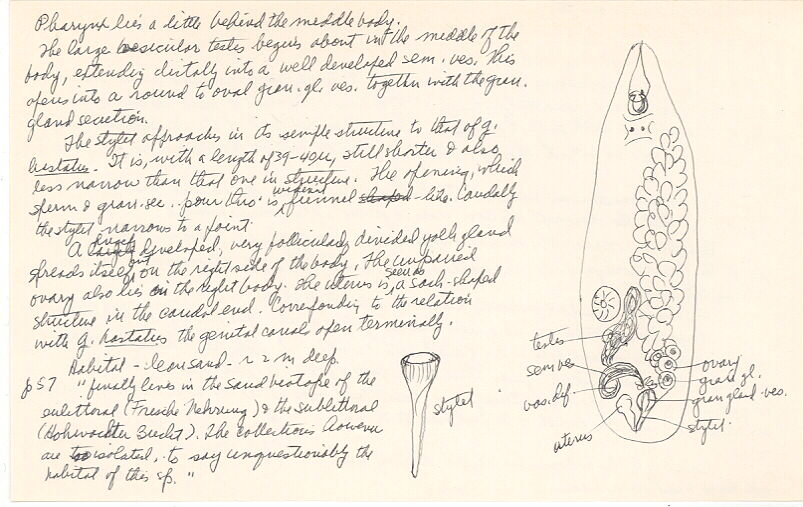 Pharynx lies a little behind the middle body.
The large vesicular testes begins about in the middle of the
body, extending distally into a well developed sem. ves. This
opens into a round to oval gran. gl. ves. together with the gran.
gland secretion.
The stylet approaches in its simple structure to that of G.
hastatus. It is, with a length of 39-40µ, still shorter & also
less narrow than that one in structure. The opening, which
sperm & gran. sec. pour thro' is widened funnel shaped-like. Caudally
the stylet narrows to a point.
A developed, very follicular, divided yolk gland
spreads itself out on the right side of the body. The unpaired
ovary also lies in the right body. The uterus is seen as a sack-shaped
structure in the caudal end. Corresponding to the relation
with G. hastatus the genital canals open terminally.
Habitat - sand - 2 m deep.
p 57 "finally lives in the sand biotope of the
eulittoral (Frische Nehrung) & the sublittoral
(Hohwachter Bucht). The collections however
are too isolated, to say unquestionably the
habitat of this sp."
stylet
testes
sem ves
vas. def.
uterus
ovary
gran gl.
gran gland ves.
stylet